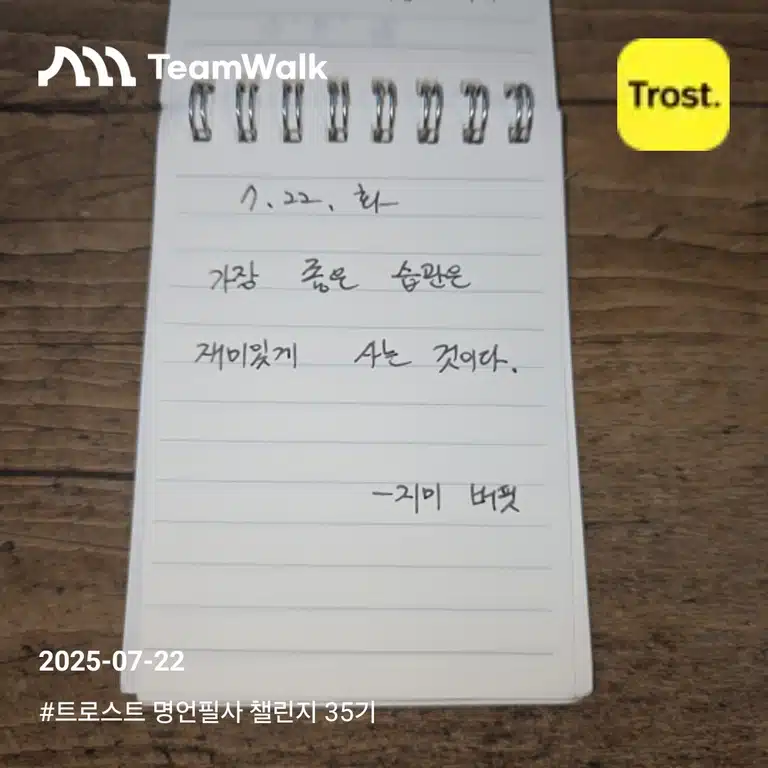 TeamWalk
Trost.
7. 22. 화
가장 좋은 습관은
재미있게 사는 것이다.
-지미 버핏
2025-07-22
#트로스트 명언필사 챌린지 35기